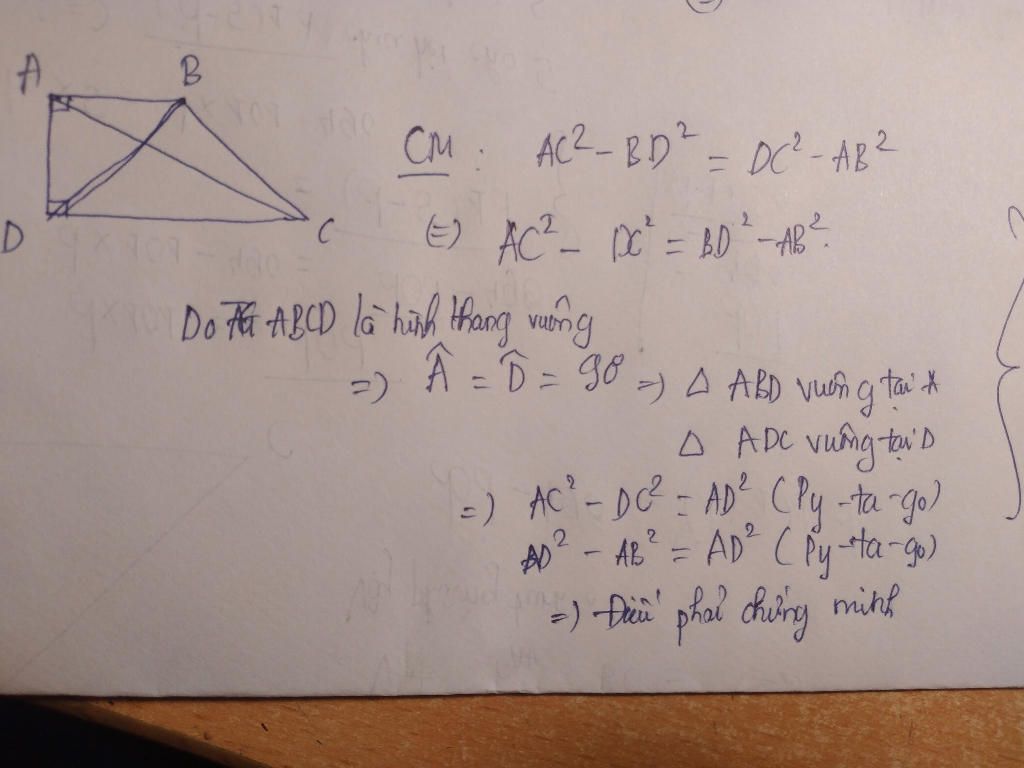 A B
CM : AC² - BD² = DC² - AB²
D C (=) AC² - DC² = BD² - AB².
Do ABCD là hình thang vuông
=) Â = D̂ = 90° =) Δ ABD vuông tại A
Δ ADC vuông tại D
=) AC² - DC² = AD² (Py-ta-go)
BD² - AB² = AD² (Py-ta-go)
=) Điều phải chứng minh